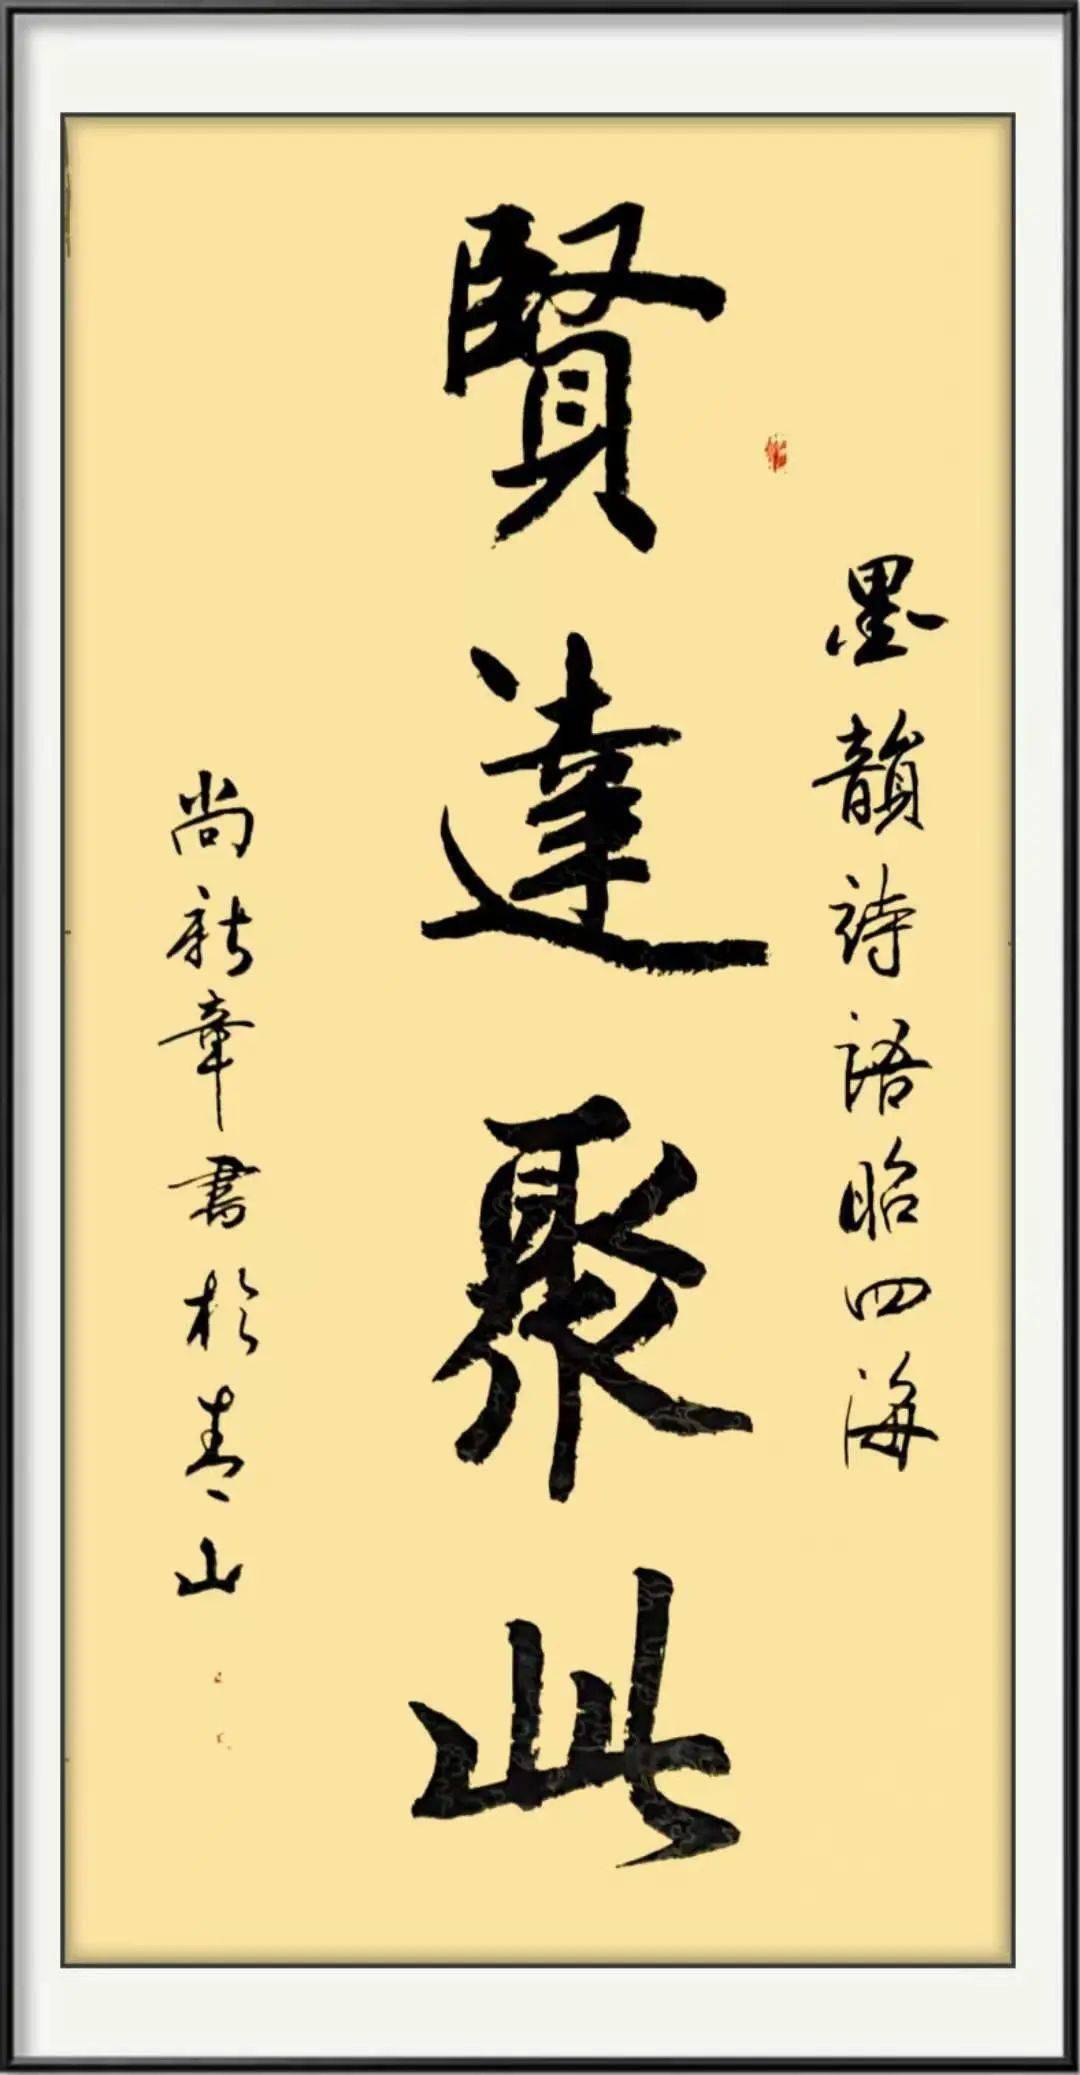 墨韻詩語昭四海
賢達聚此
尚新章書於青山